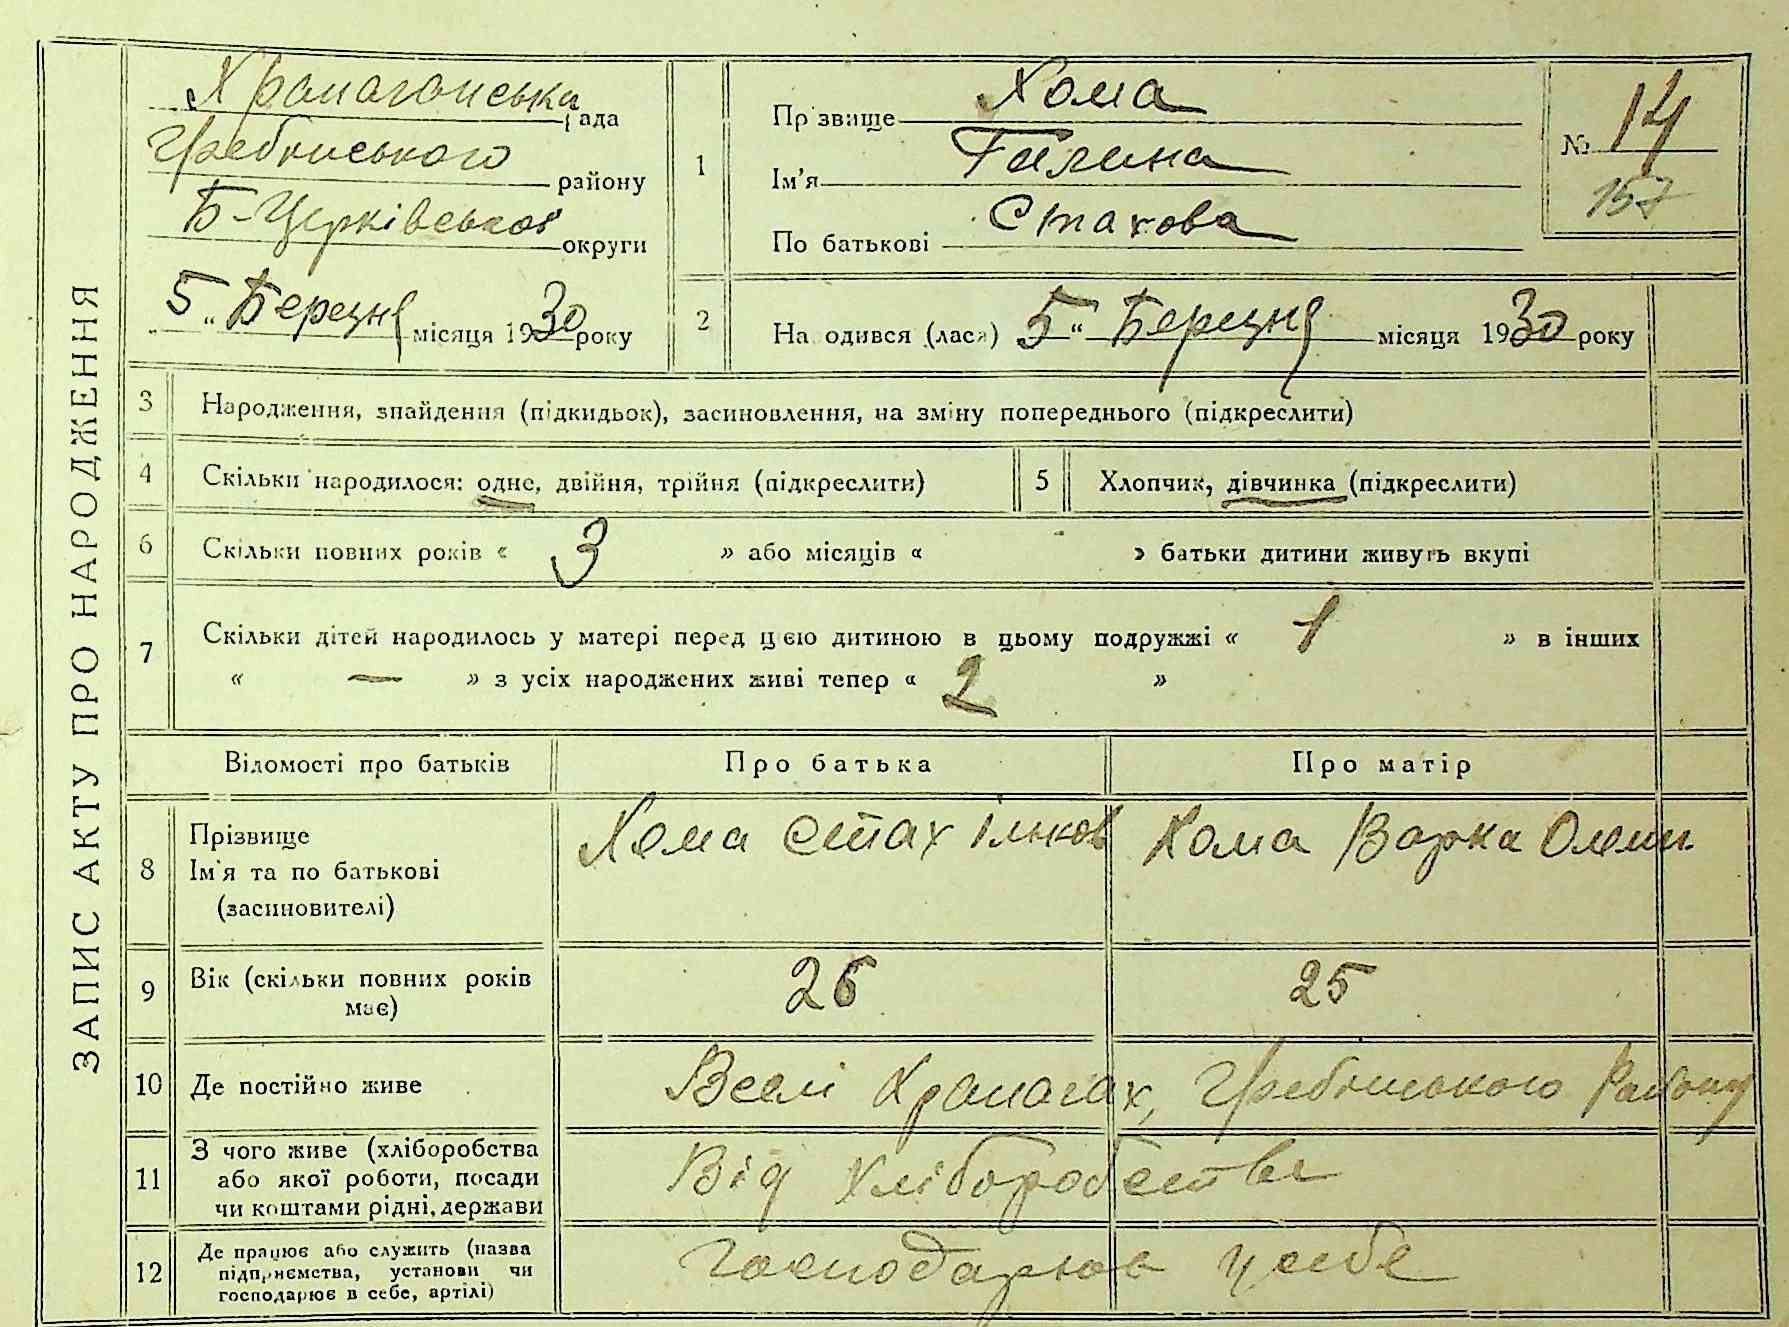 ЗАПИС АКТУ ПРО НАРОДЖЕННЯ
Храпаганська рада
Гребінського району
Б-Церківської округи
5 " Березня місяця 1930 року
1
Прізвище Хома
Ім'я Галина
По батькові Стахова
№ 14
157
2
Народився (лася) 5 " Березня місяця 1930 року
3 Народження, знайдення (підкидьок), засиновлення, на зміну попереднього (підкреслити)
4 Скільки народилося: одне, двійня, трійня (підкреслити) 5 Хлопчик, дівчинка (підкреслити)
6 Скільки повних років « 3 » або місяців « » батьки дитини живуть вкупі
7 Скільки дітей народилось у матері перед цією дитиною в цьому подружжі « 1 » в інших
« — » з усіх народжених живі тепер « 2 »
Відомості про батьків Про батька Про матір
8 Прізвище
Ім'я та по батькові
(засиновителі)
Хома Стах Ільков Хома Варка Олекс
9 Вік (скільки повних років
має)
26 25
10 Де постійно живе Вселі Храпагах, Гребінського Району
11 З чого живе (хліборобства
або якої роботи, посади
чи коштами рідні, держави
Від Хліборобства
12 Де працює або служить (назва
підприємства, установи чи
господарює в себе, артілі)
Господарює у себе